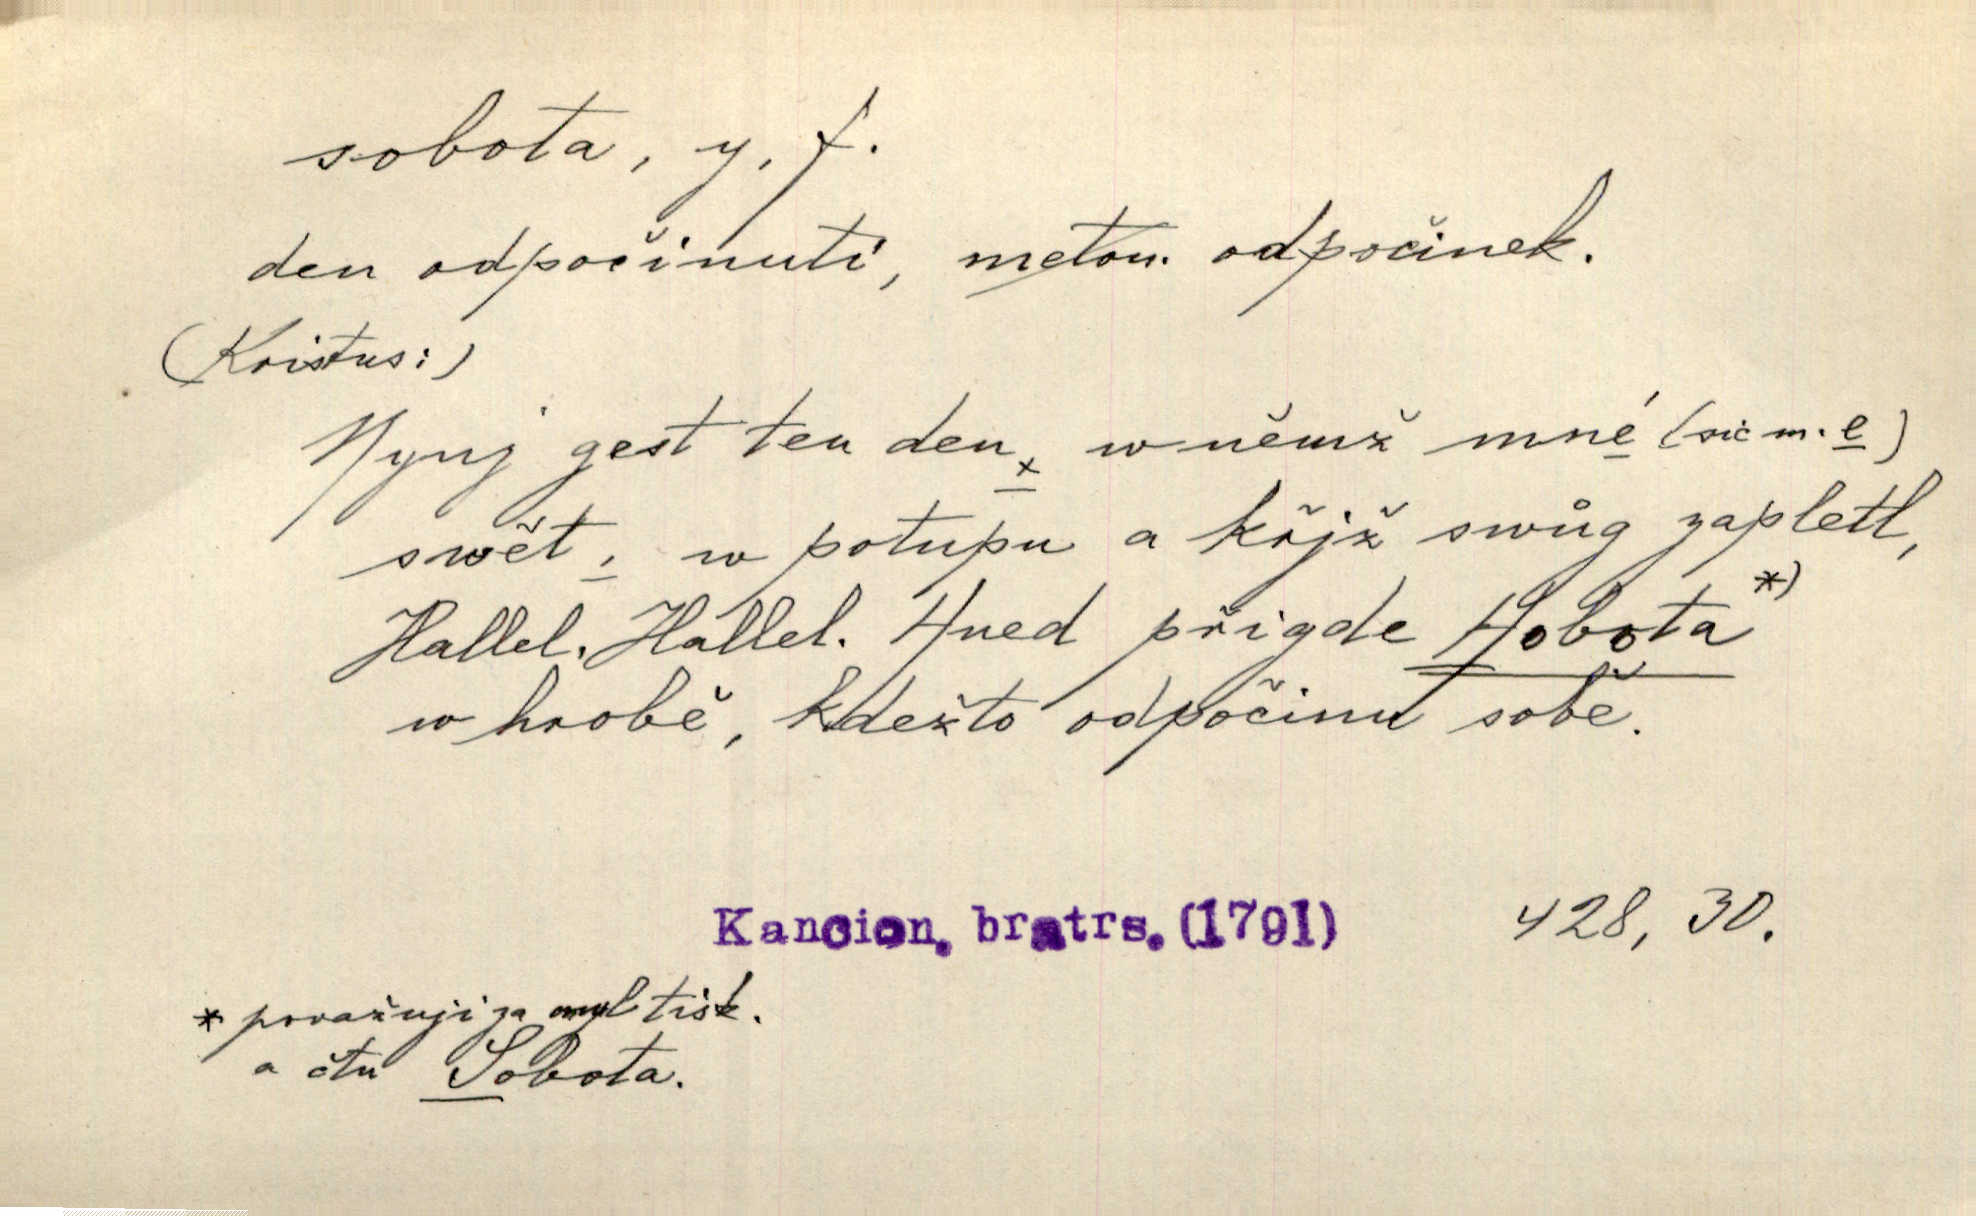 sobota, y, f.
den odpočinutí, meton. odpočinek.
(Kristus:)
Nynj gest ten den x w němž mné (sic m. e)
swět, w potupu a křjž swůg zapletl,
Hallel. Hallel. Hned přigde Hobota *)
w hrobě, kdežto odpočinu sobě.
Kancion. bratrs. (1791) 428, 30.
* považuji za omyl tisk.
a čtu Sobota.